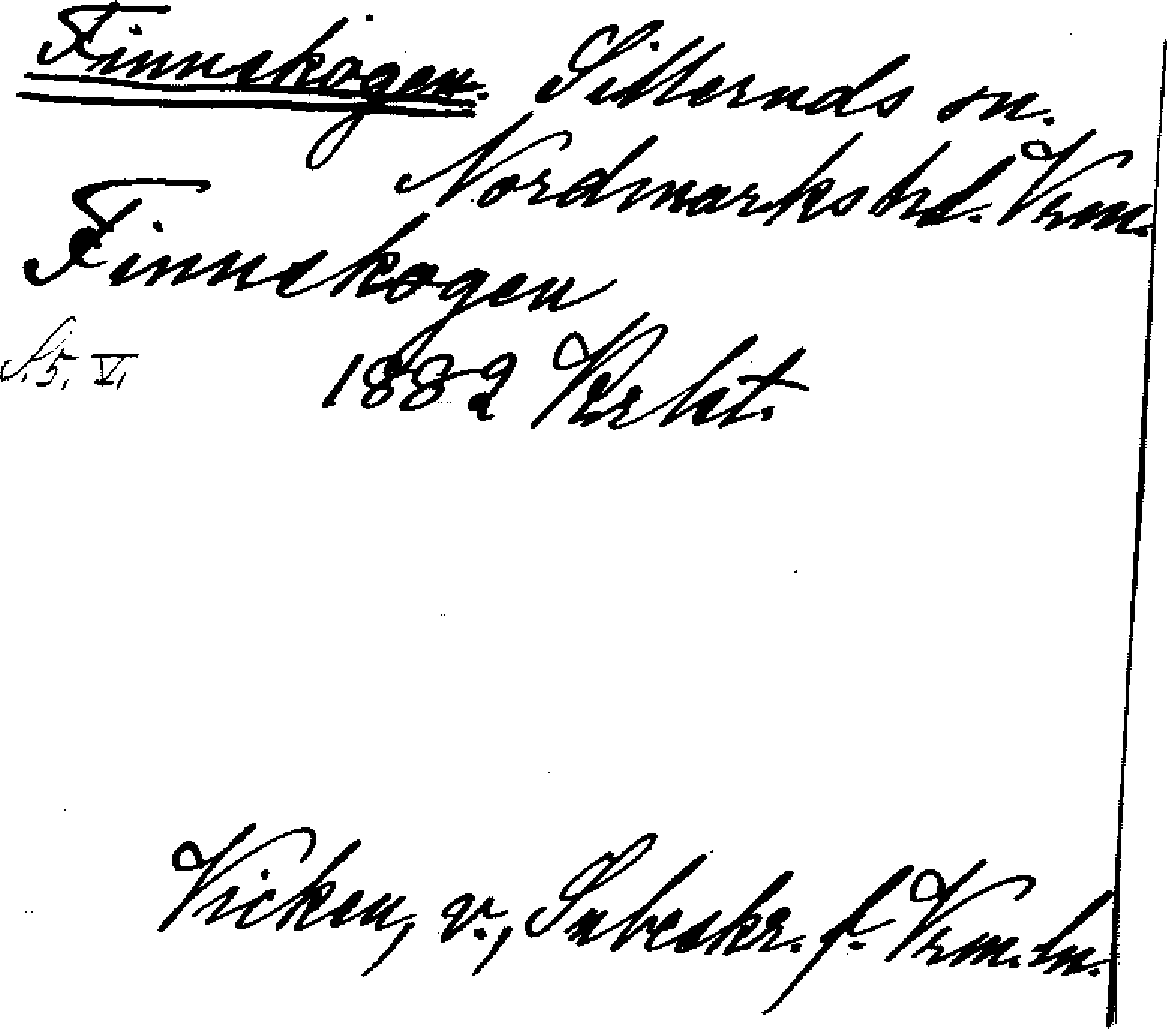 Finnskogen. Silleruds sn.
Nordmarks hd. Vrm.
Finnskogen
5. V. 1882
Vicken, v., Snbeskr. f. Vrm. ln.